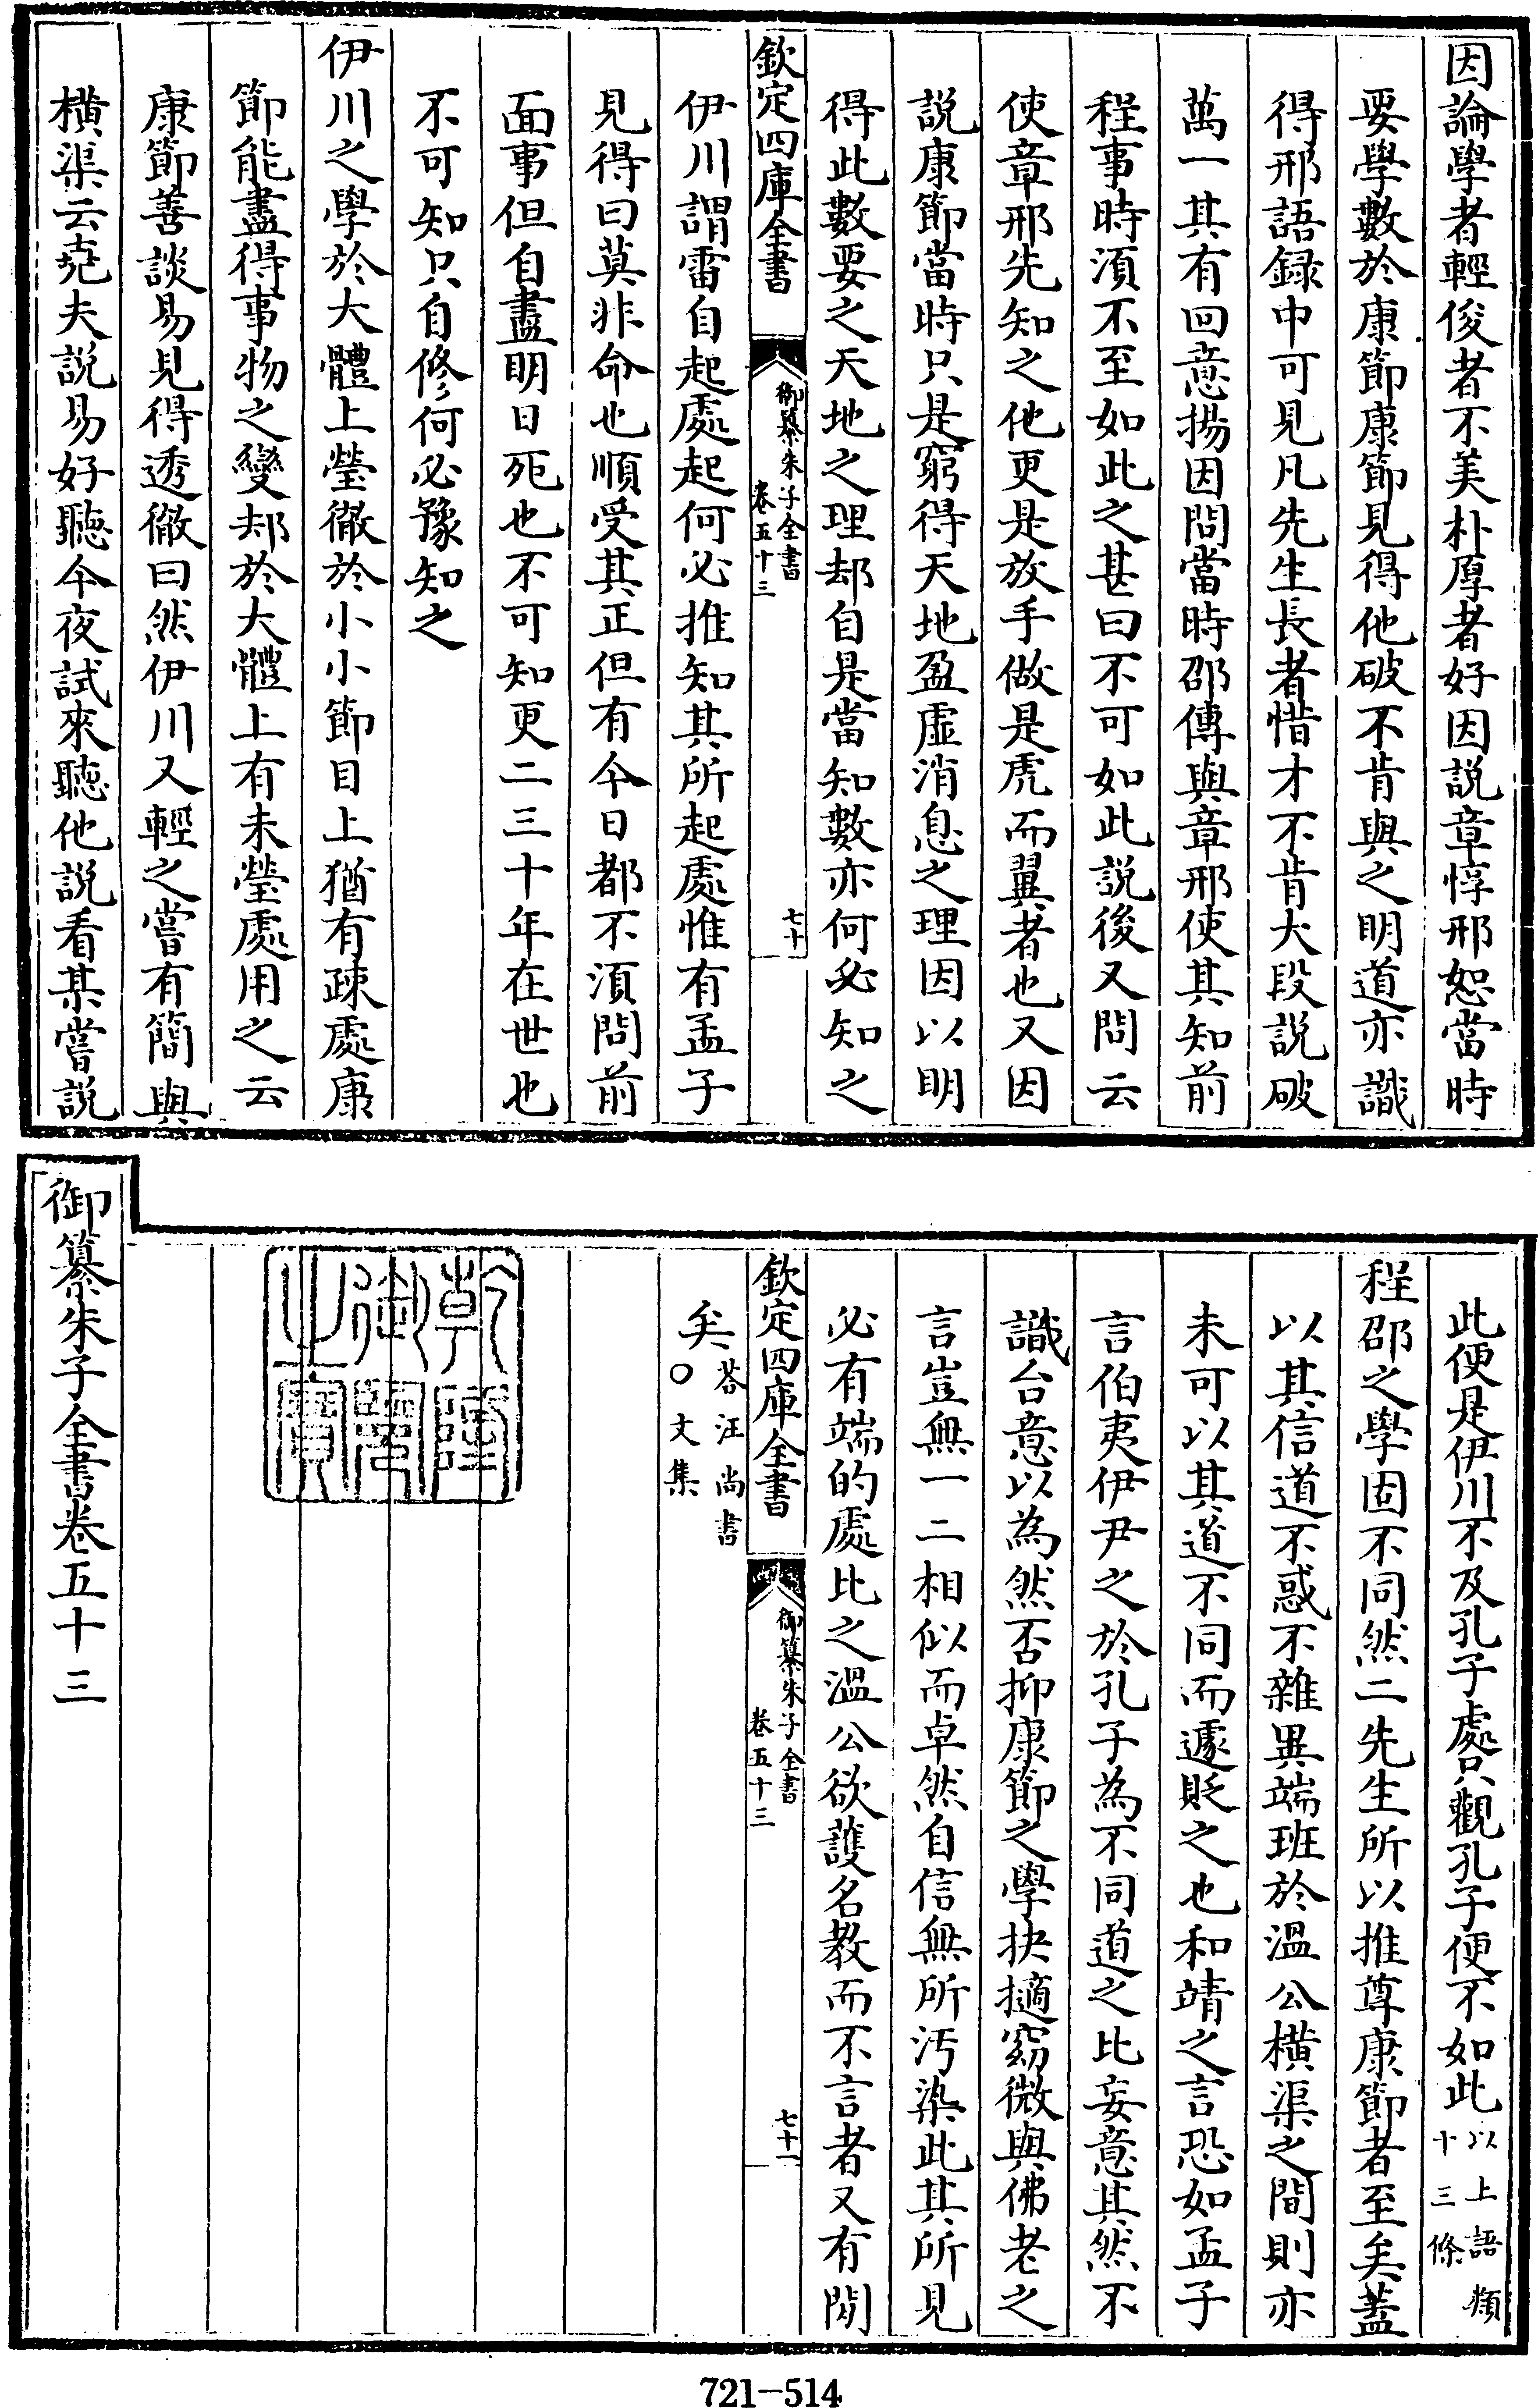 因論學者輕俊者不美朴厚者好因説章惇邢恕當時
要學數於康節康節見得他破不肯與之明道亦識
得邢語録中可見凡先生長者惜才不肯大段説破
萬一其有回意揚因問當時邵傳與章邢使其知前
程事時湏不至如此之甚曰不可如此説後又問云
使章邢先知之他更是放手做是虎而翼者也又因
説康節當時只是窮得天地盈虚消息之理因以明
得此數要之天地之理却自是當知數亦何必知之
欽定四庫全書
御纂朱子全書
卷五十三
七十
伊川謂雷自起處起何必推知其所起處惟有孟子
見得曰莫非命也順受其正但有今日都不湏問前
面事但自盡明日死也不可知更二三十年在世也
不可知只自修何必豫知之
伊川之學於大體上瑩徹於小小節目上猶有疎處康
節能盡得事物之變却於大體上有未瑩處用之云
康節善談易見得透徹曰然伊川又輕之嘗有簡與
橫渠云堯夫説易好聽今夜試來聽他説看某嘗説
此便是伊川不及孔子處只觀孔子便不如此
以上語類
十三條
程邵之學固不同然二先生所以推尊康節者至矣蓋
以其信道不惑不雜異端班於溫公橫渠之間則亦
未可以其道不同而遽貶之也和靖之言恐如孟子
言伯夷伊尹之於孔子為不同道之比妄意其然不
識台意以為然否抑康節之學抉擿窈微與佛老之
言豈無一二相似而卓然自信無所汚染此其所見
必有端的處比之溫公欲護名教而不言者又有間
欽定四庫全書
御纂朱子全書
卷五十三
七十一
矣
荅汪尚書
○文集
乾隆御覽之寶
御纂朱子全書卷五十三
721-514